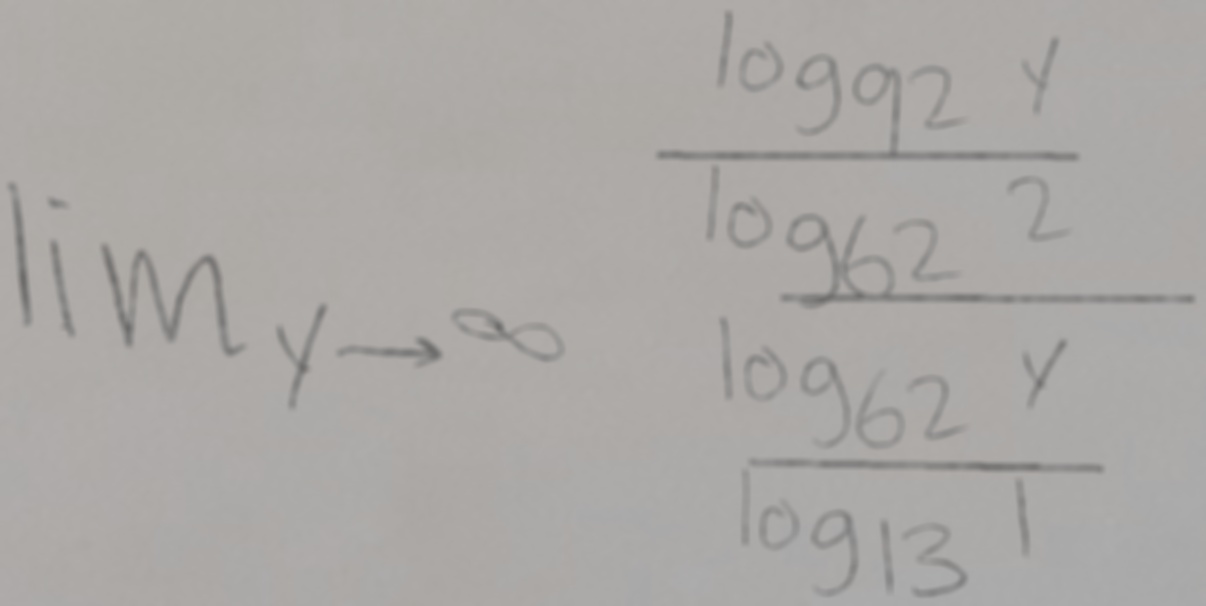 \lim_{y \to \infty} \frac{\frac{\log_{92} y}{\log_{62} 2}}{\frac{\log_{62} y}{\log_{13} 1}}